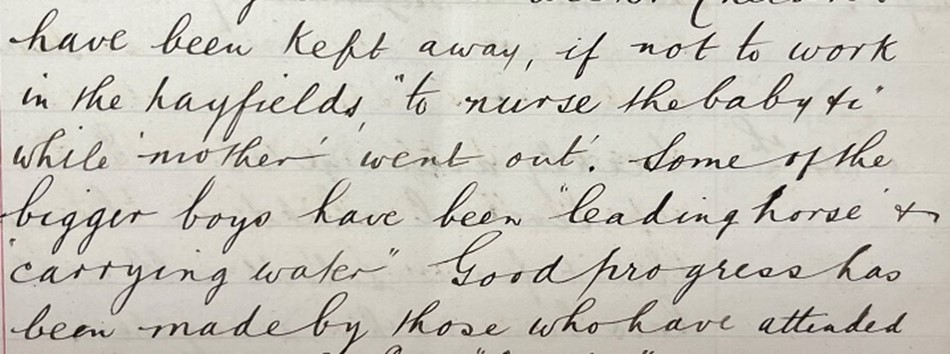 have been kept away, if not to work
in the hayfields, "to nurse the baby &c"
while 'mother' went out'. Some of the
bigger boys have been "leading horse" &
"carrying water" Good progress has
been made by those who have attended